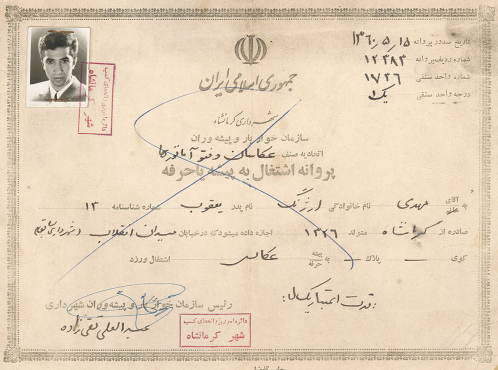 تاریخ صدور پروانه ۱۳۶۰٫۵٫۱۵
شماره ردیف پروانه ۱۲۳۸۳
شماره واحد صنفی ۱۷۲۶
درجه واحد صنفی یک
جمهوری اسلامی ایران
شهرداری کرمانشاه
سازمان خواربار و پیشه وران
اتحادیه صنف عکاسان و فتوآماتورها
پروانه اشتغال به پیشه یا حرفه
به آقای مهدی نام خانوادگی ارژنگ نام پدر یعقوب شماره شناسنامه ۱۳
صادره از کرمانشاه متولد ۱۳۲۶ اجازه داده میشود که در خیابان میدان انقلاب
کوی پلاک به پیشه حرفه عکاسی اشتغال ورزد
رئیس سازمان خواربار و پیشه وران شهرداری
عبدالعلی تقی زاده
شهر کرمانشاه
شهر کرمانشاه